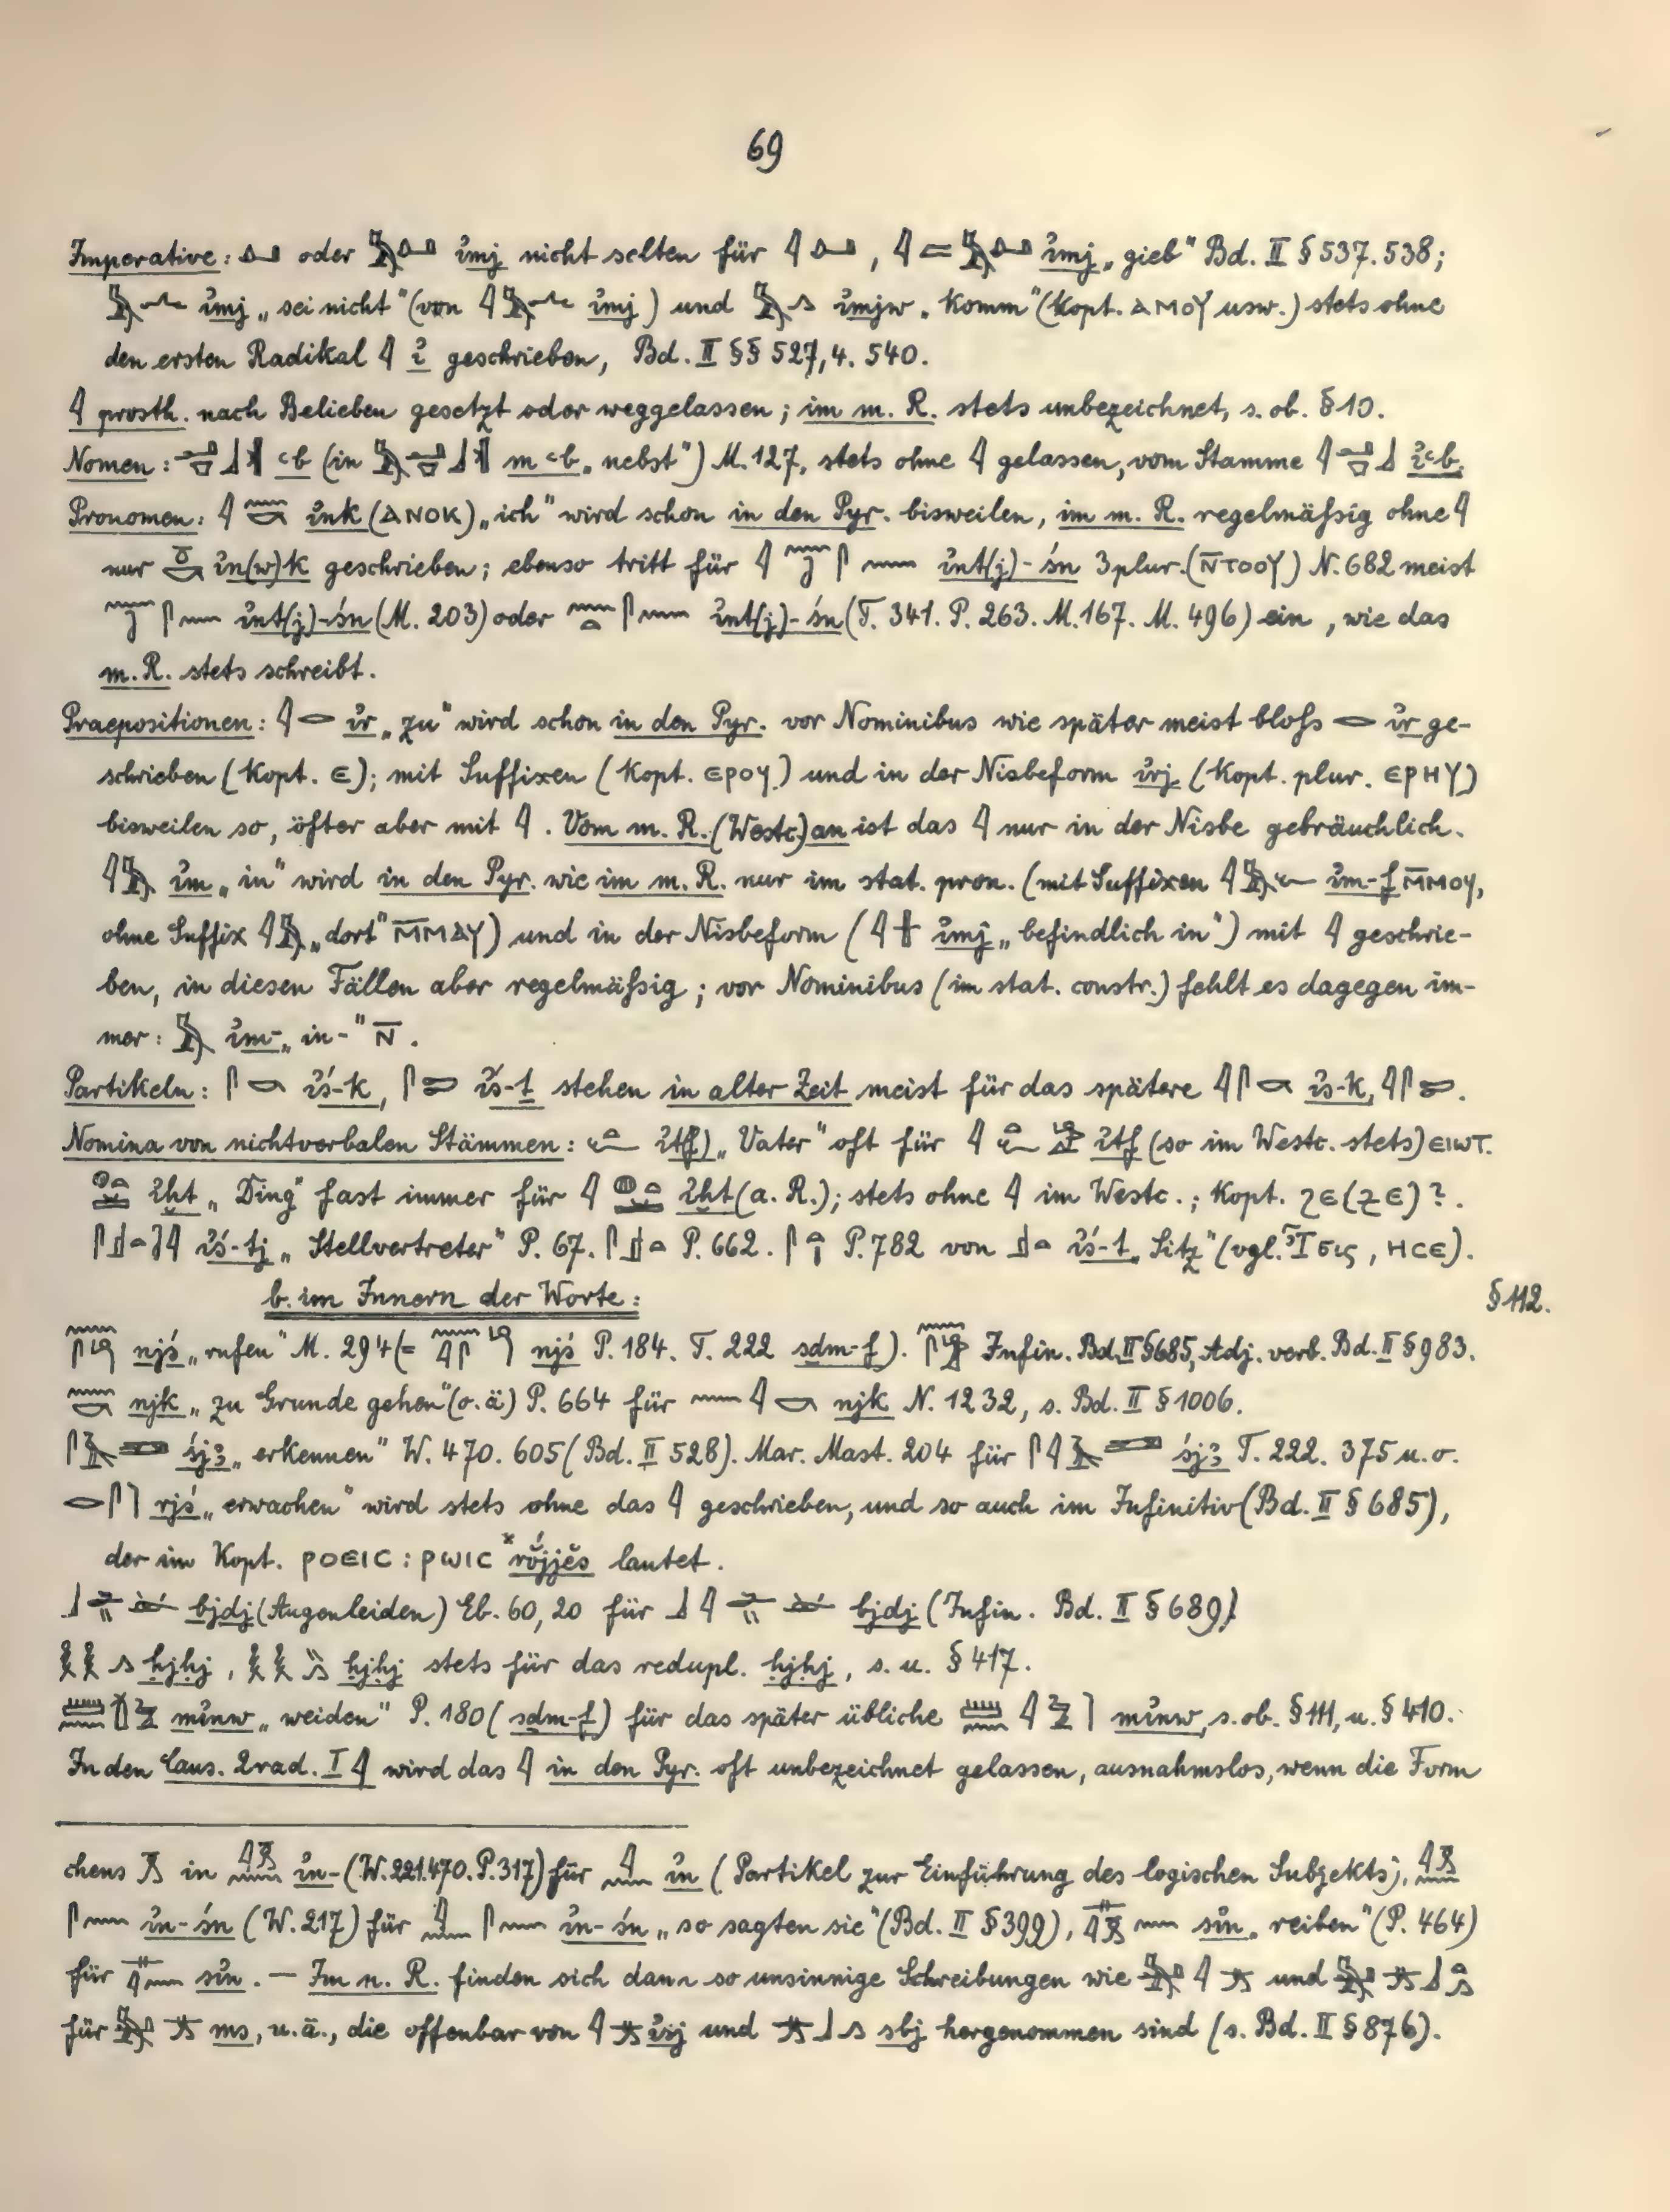 69
Imperative: 𓂞 oder 𓅓𓂞 ı͗mj nicht selten für 𓇋𓂞, 𓇋𓐛𓅓𓂞 ı͗mj „gieb" Bd. II § 537. 538;
𓅓𓂜 ı͗mj „sei nicht" (von 𓇋𓅓𓂜 ı͗mj) und 𓅓𓂻 ı͗mjw „Komm" (Kopt. ⲁⲙⲟⲩ usw.) stets ohne
den ersten Radikal 𓇋 ı͗ geschrieben, Bd. II §§ 527,4. 540.
𓇋 prosth. nach Belieben gesetzt oder weggelassen; im m. R. stets unbezeichnet, s. ob. § 10.
Nomen: ꜥb (in m ꜥb „nebst") M. 127, stets ohne 𓇋 gelassen, vom Stamme ı͗ꜥb.
Pronomen: 𓇋𓈖𓎡 ı͗nk (ⲁⲛⲟⲕ) „ich" wird schon in den Pyr. bisweilen, im m. R. regelmäßig ohne 𓇋
nur 𓏌𓎡 ı͗n(w)k geschrieben; ebenso tritt für 𓇋𓈖𓍿𓋴𓈖 ı͗nt(j)-śn 3 plur. (ⲛ̄ⲧⲟⲟⲩ) N. 682 meist
ı͗nt(j)-śn (M. 203) oder 𓈖𓏏𓋴𓈖 ı͗nt(j)-śn (T. 341. P. 263. M. 167. M. 496) ein, wie das
m. R. stets schreibt.
Praepositionen: 𓇋𓂋 ı͗r „zu" wird schon in den Pyr. vor Nominibus wie später meist bloß 𓂋 ı͗r ge-
schrieben (Kopt. ⲉ); mit Suffixen (Kopt. ⲉⲣⲟϥ) und in der Nisbeform ı͗rj (Kopt. plur. ⲉⲣⲏⲩ)
bisweilen so, öfter aber mit 𓇋. Vom m. R. (Westc.) an ist das 𓇋 nur in der Nisbe gebräuchlich.
𓇋𓅓 ı͗m „in" wird in den Pyr. wie im m. R. nur im stat. pron. (mit Suffixen 𓇋𓅓𓆑 ı͗m-f ⲙ̄ⲙⲟϥ,
ohne Suffix 𓇋𓅓 „dort" ⲙ̄ⲙⲁⲩ) und in der Nisbeform (𓇋𓏶 ı͗mj „befindlich in") mit 𓇋 geschrie-
ben, in diesen Fällen aber regelmäßig; vor Nominibus (im stat. constr.) fehlt es dagegen im-
mer: 𓅓 ı͗m- „in-" ⲛ̄.
Partikeln: 𓋴𓎡 ı͗ś-k, 𓋴𓍿 ı͗ś-ṯ stehen in alter Zeit meist für das spätere 𓇋𓋴𓎡 ı͗s-k, 𓇋𓋴𓍿.
Nomina von nichtverbalen Stämmen: 𓏏𓆑 ı͗t(f) „Vater" oft für 𓇋𓏏𓆑𓀀 ı͗tf (so im Westc. stets) ⲉⲓⲱⲧ.
𓐍𓏏 ı͗ḫt „Ding" fast immer für 𓇋𓐍𓏏 ı͗ḫt (a. R.); stets ohne 𓇋 im Westc.; Kopt. ϩⲉ (ϩⲉ)?.
ı͗ś-tj „Stellvertreter" P. 67. P. 662. P. 782 von 𓊨𓏏 ı͗ś-t „Sitz" (vgl. Ἶσις, ⲏⲥⲉ).
b. im Innern der Worte: § 112.
njś „rufen" M. 294 (= njś P. 184. T. 222 sdm-f). Infin. Bd. II § 685, Adj. verb. Bd. II § 983.
𓈖𓎡 njk „zu Grunde gehen" (o. ä) P. 664 für 𓈖𓇋𓎡 njk N. 1232, s. Bd. II § 1006.
śjꜣ „erkennen" W. 470. 605 (Bd. II 528). Mar. Mast. 204 für śjꜣ T. 222. 375 u. o.
𓂋𓋴 rjś „erwachen" wird stets ohne das 𓇋 geschrieben, und so auch im Infinitiv (Bd. II § 685),
der im Kopt. ⲣⲟⲉⲓⲥ : ⲣⲱⲓⲥ *rŏ́jjĕs lautet.
bjdj (Augenleiden) Eb. 60, 20 für bjdj (Infin. Bd. II § 689)
𓎛𓎛𓂻 ḥjḥj, 𓎛𓎛𓏭𓂻 ḥjḥj stets für das redupl. ḥjḥj, s. u. § 417.
mı͗nw „weiden" P. 180 (sdm-f) für das später übliche mı͗nw, s. ob. § 111, u. § 410.
In den Caus. 2rad. I 𓇋 wird das 𓇋 in den Pyr. oft unbezeichnet gelassen, ausnahmslos, wenn die Form
chens in ı͗n- (W. 221. 470. P. 317) für 𓇋𓈖 ı͗n (Partikel zur Einführung des logischen Subjekts),
ı͗n-śn (W. 217) für 𓇋𓈖𓋴𓈖 ı͗n-śn „so sagten sie" (Bd. II § 399), sı͗n „reiben" (P. 464)
für sı͗n. — Im n. R. finden sich dann so unsinnige Schreibungen wie und
für ms, u. ä., die offenbar von ı͗sj und sbj hergenommen sind (s. Bd. II § 876).